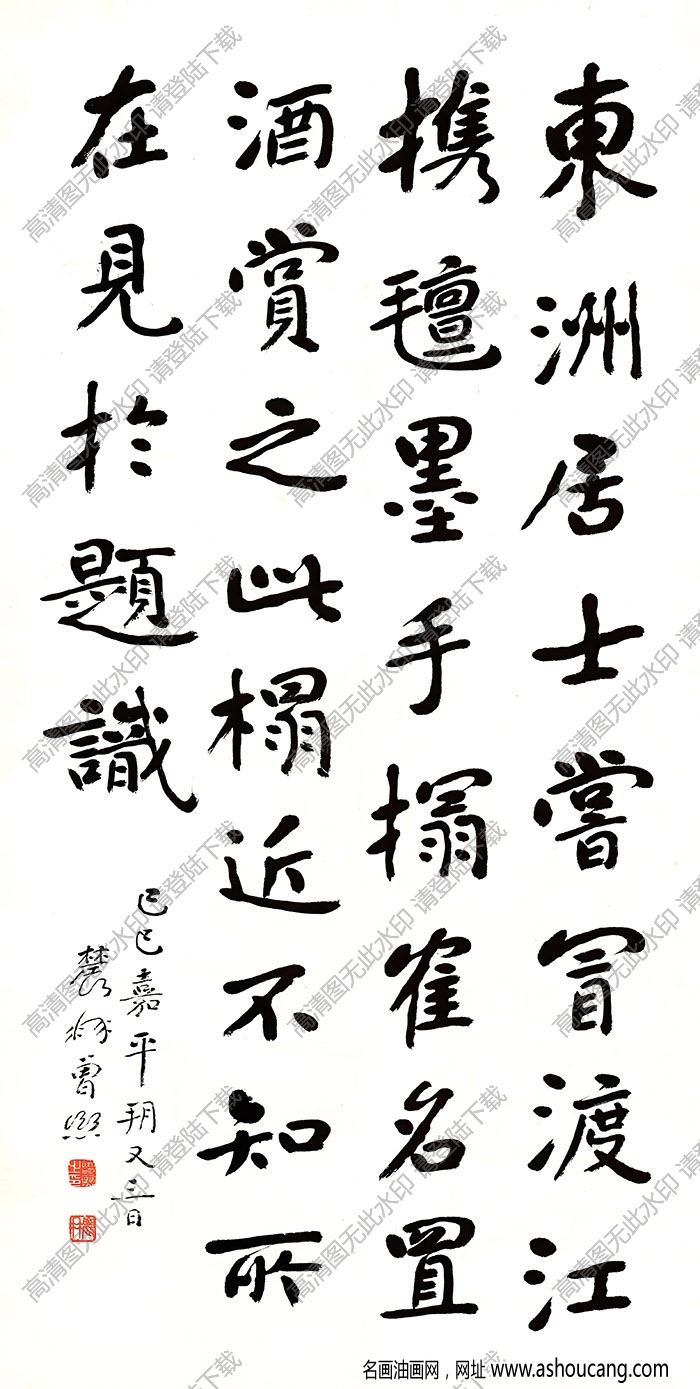 東洲居士嘗冒渡江
携氊墨手搨寉名置
酒賞之此榻近不知所
在見於題識
己巳嘉平朔又三日
農髯曾熙
高清图无此水印 请登陆下载
名画油画网，网址 www.ashoucang.com